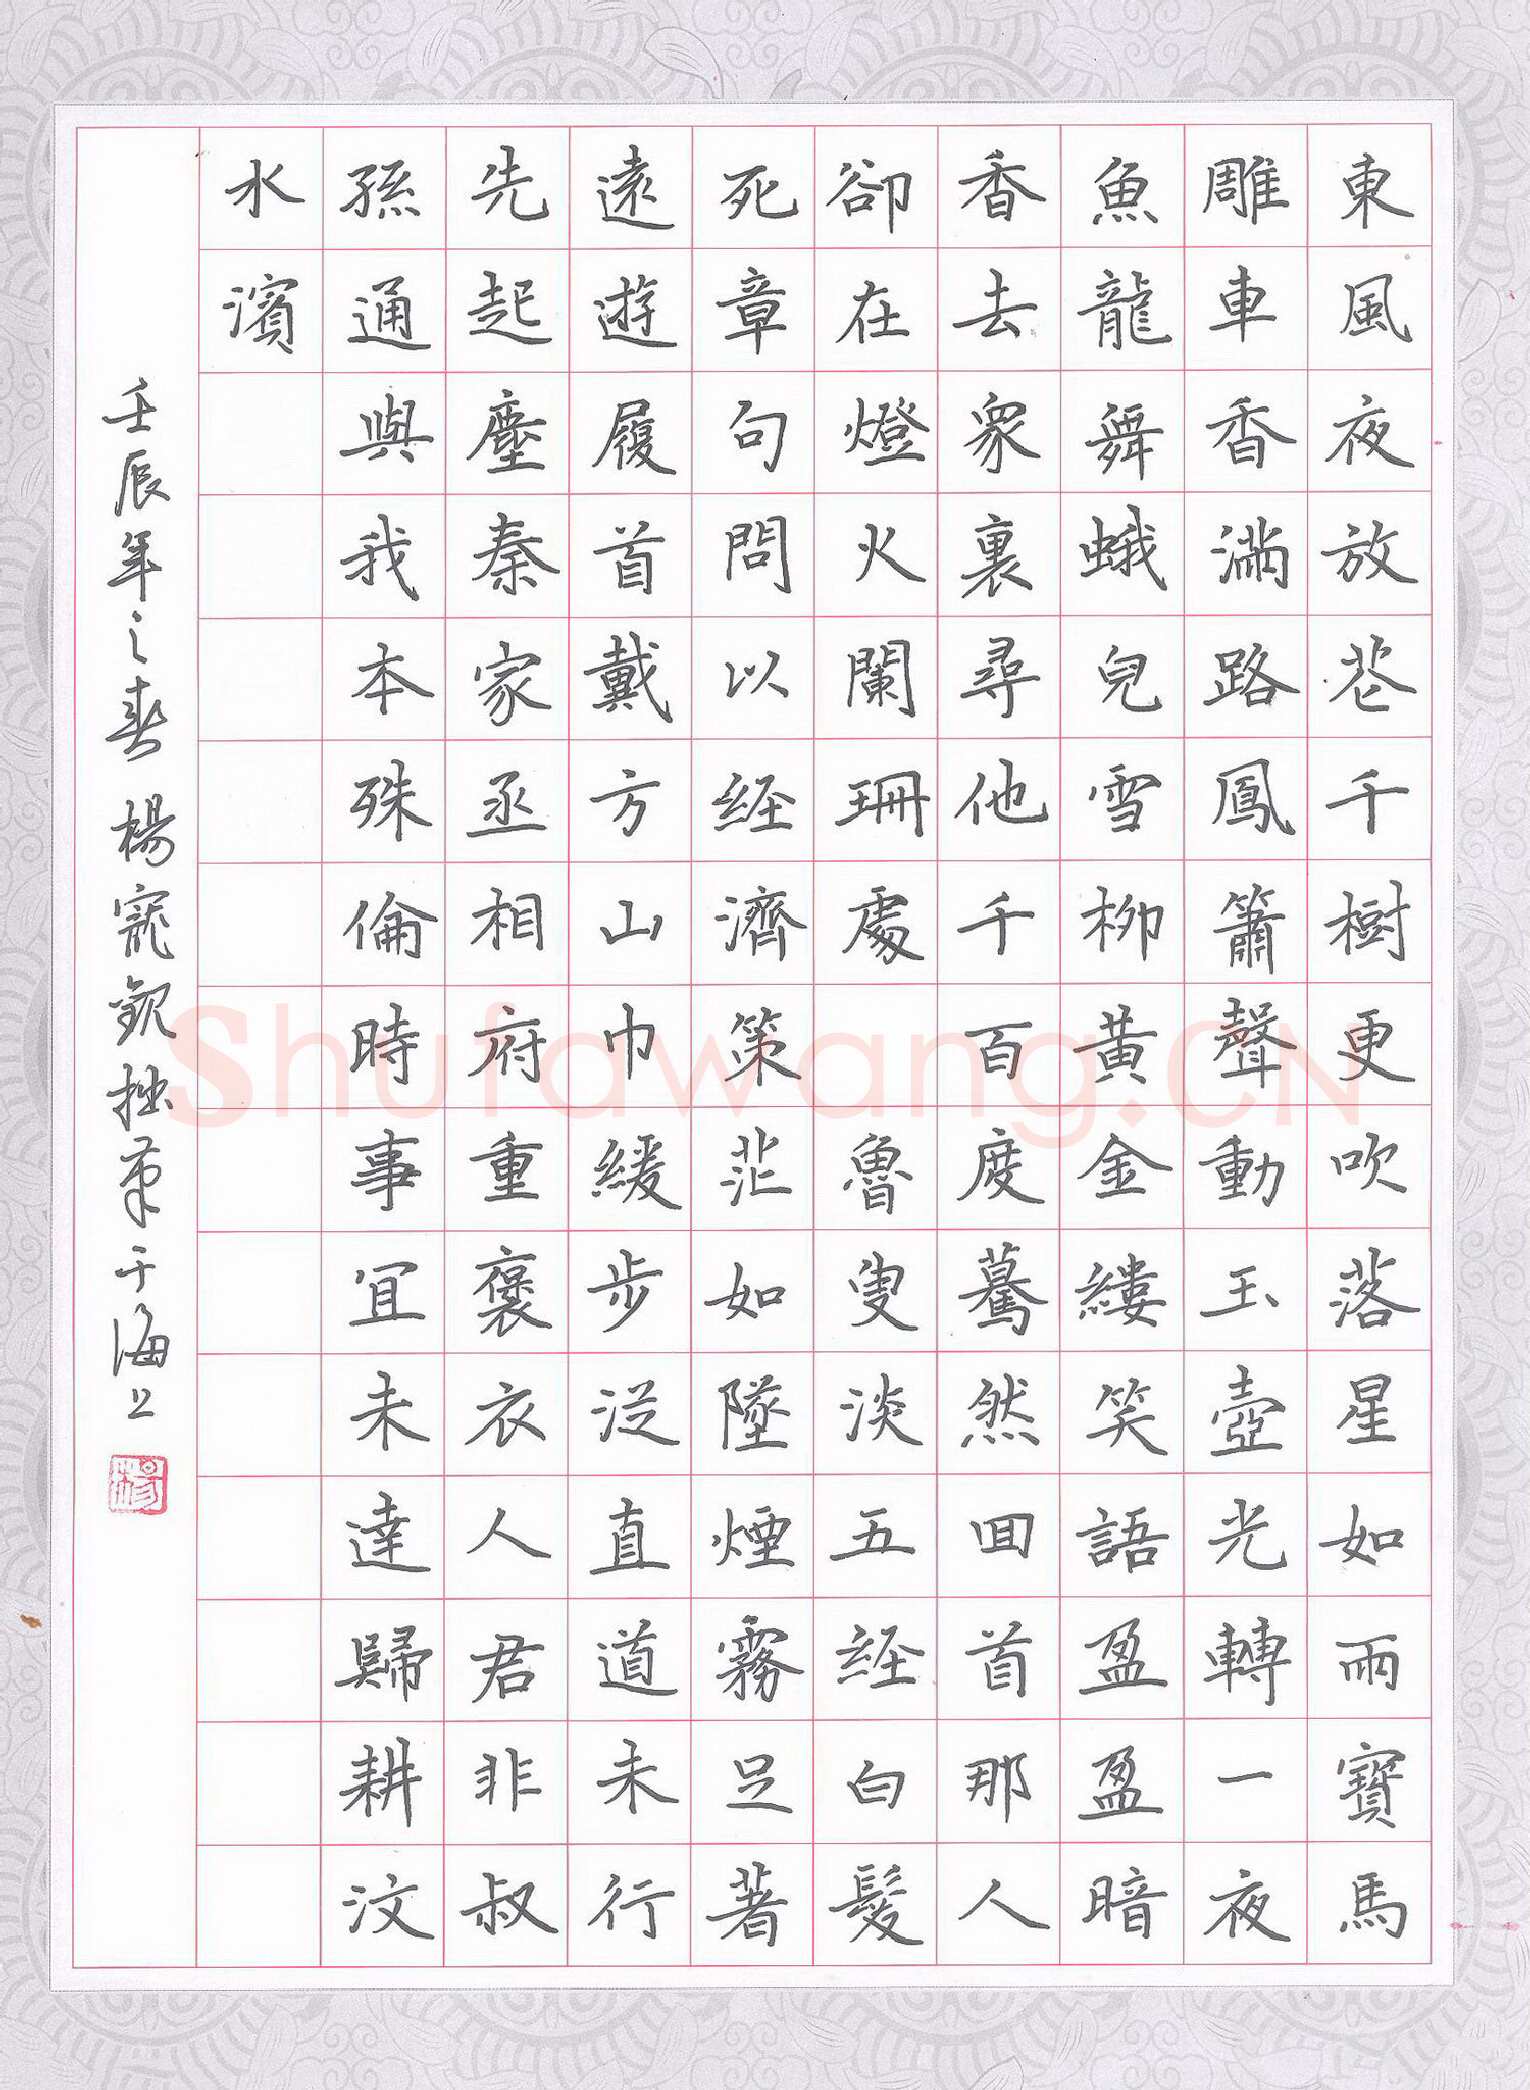 東風夜放花千樹更吹落星如雨寶馬
雕車香滿路鳳簫聲動玉壺光轉一夜
魚龍舞蛾兒雪柳黃金縷笑語盈盈暗
香去眾裏尋他千百度驀然回首那人
卻在燈火闌珊處 魯叟淡五經白髮
死章句問以經濟策茫如墜煙霧足著
遠遊履首戴方山巾緩步從直道未行
先起塵秦家丞相府重褒衣人君非叔
孫通與我本殊倫時事宜未達歸耕汶
水濱
壬辰年之春 楊寵欽拙筆于海上
楊
Shufawang.CN